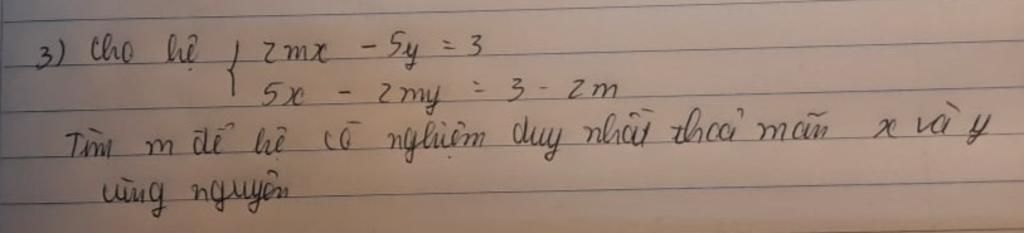 3) Cho hệ { 2mx - 5y = 3
5x - 2my = 3 - 2m
Tìm m để hệ có nghiệm duy nhất thoả mãn x và y
cùng nguyên